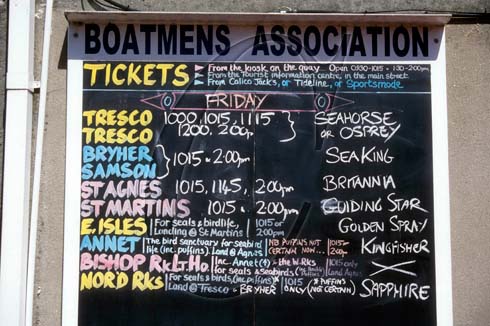 BOATMENS ASSOCIATION
TICKETS From the kiosk, on the quay. Open 0930-1015 & 130-200pm
From the Tourist information centre, in the main street.
From Calico Jack's, or Tideline, or Sportsmode
FRIDAY
TRESCO 1000, 1015, 1115 SEAHORSE
TRESCO 1200, 2.00p. OR OSPREY
BRYHER
SAMSON 1015 & 2.00pm SEAKING
ST AGNES 1015, 1145, 2.00pm BRITANNIA
ST MARTINS 1015 & 2.00pm GUIDING STAR
E. ISLES For seals & birdlife, 1015 or GOLDEN SPRAY
Landing @ St Martins 2.00pm
ANNET The bird sanctuary for seabird NB PUFFINS NOT 1015 or KINGFISHER
life (inc. puffins). Land @ Agnes CERTAIN NOW... 2.00p
BISHOP Rk Lt. Ho. Inc. Annet & the W. Rks 1015 only
for seals & seabirds Land Agnes
NORD Rks For seals & birds (inc. puffins) 1015 PUFFINS SAPPHIRE
Land @ Tresco - BRYHER ONLY (NOT CERTAIN)